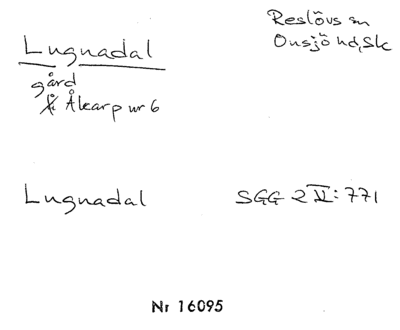 Lugnadal
Reslövs sn
Onsjö hd, Sk
gård
Åkarp nr 6
Lugnadal
SGG 2 II: 771
Nr 16095